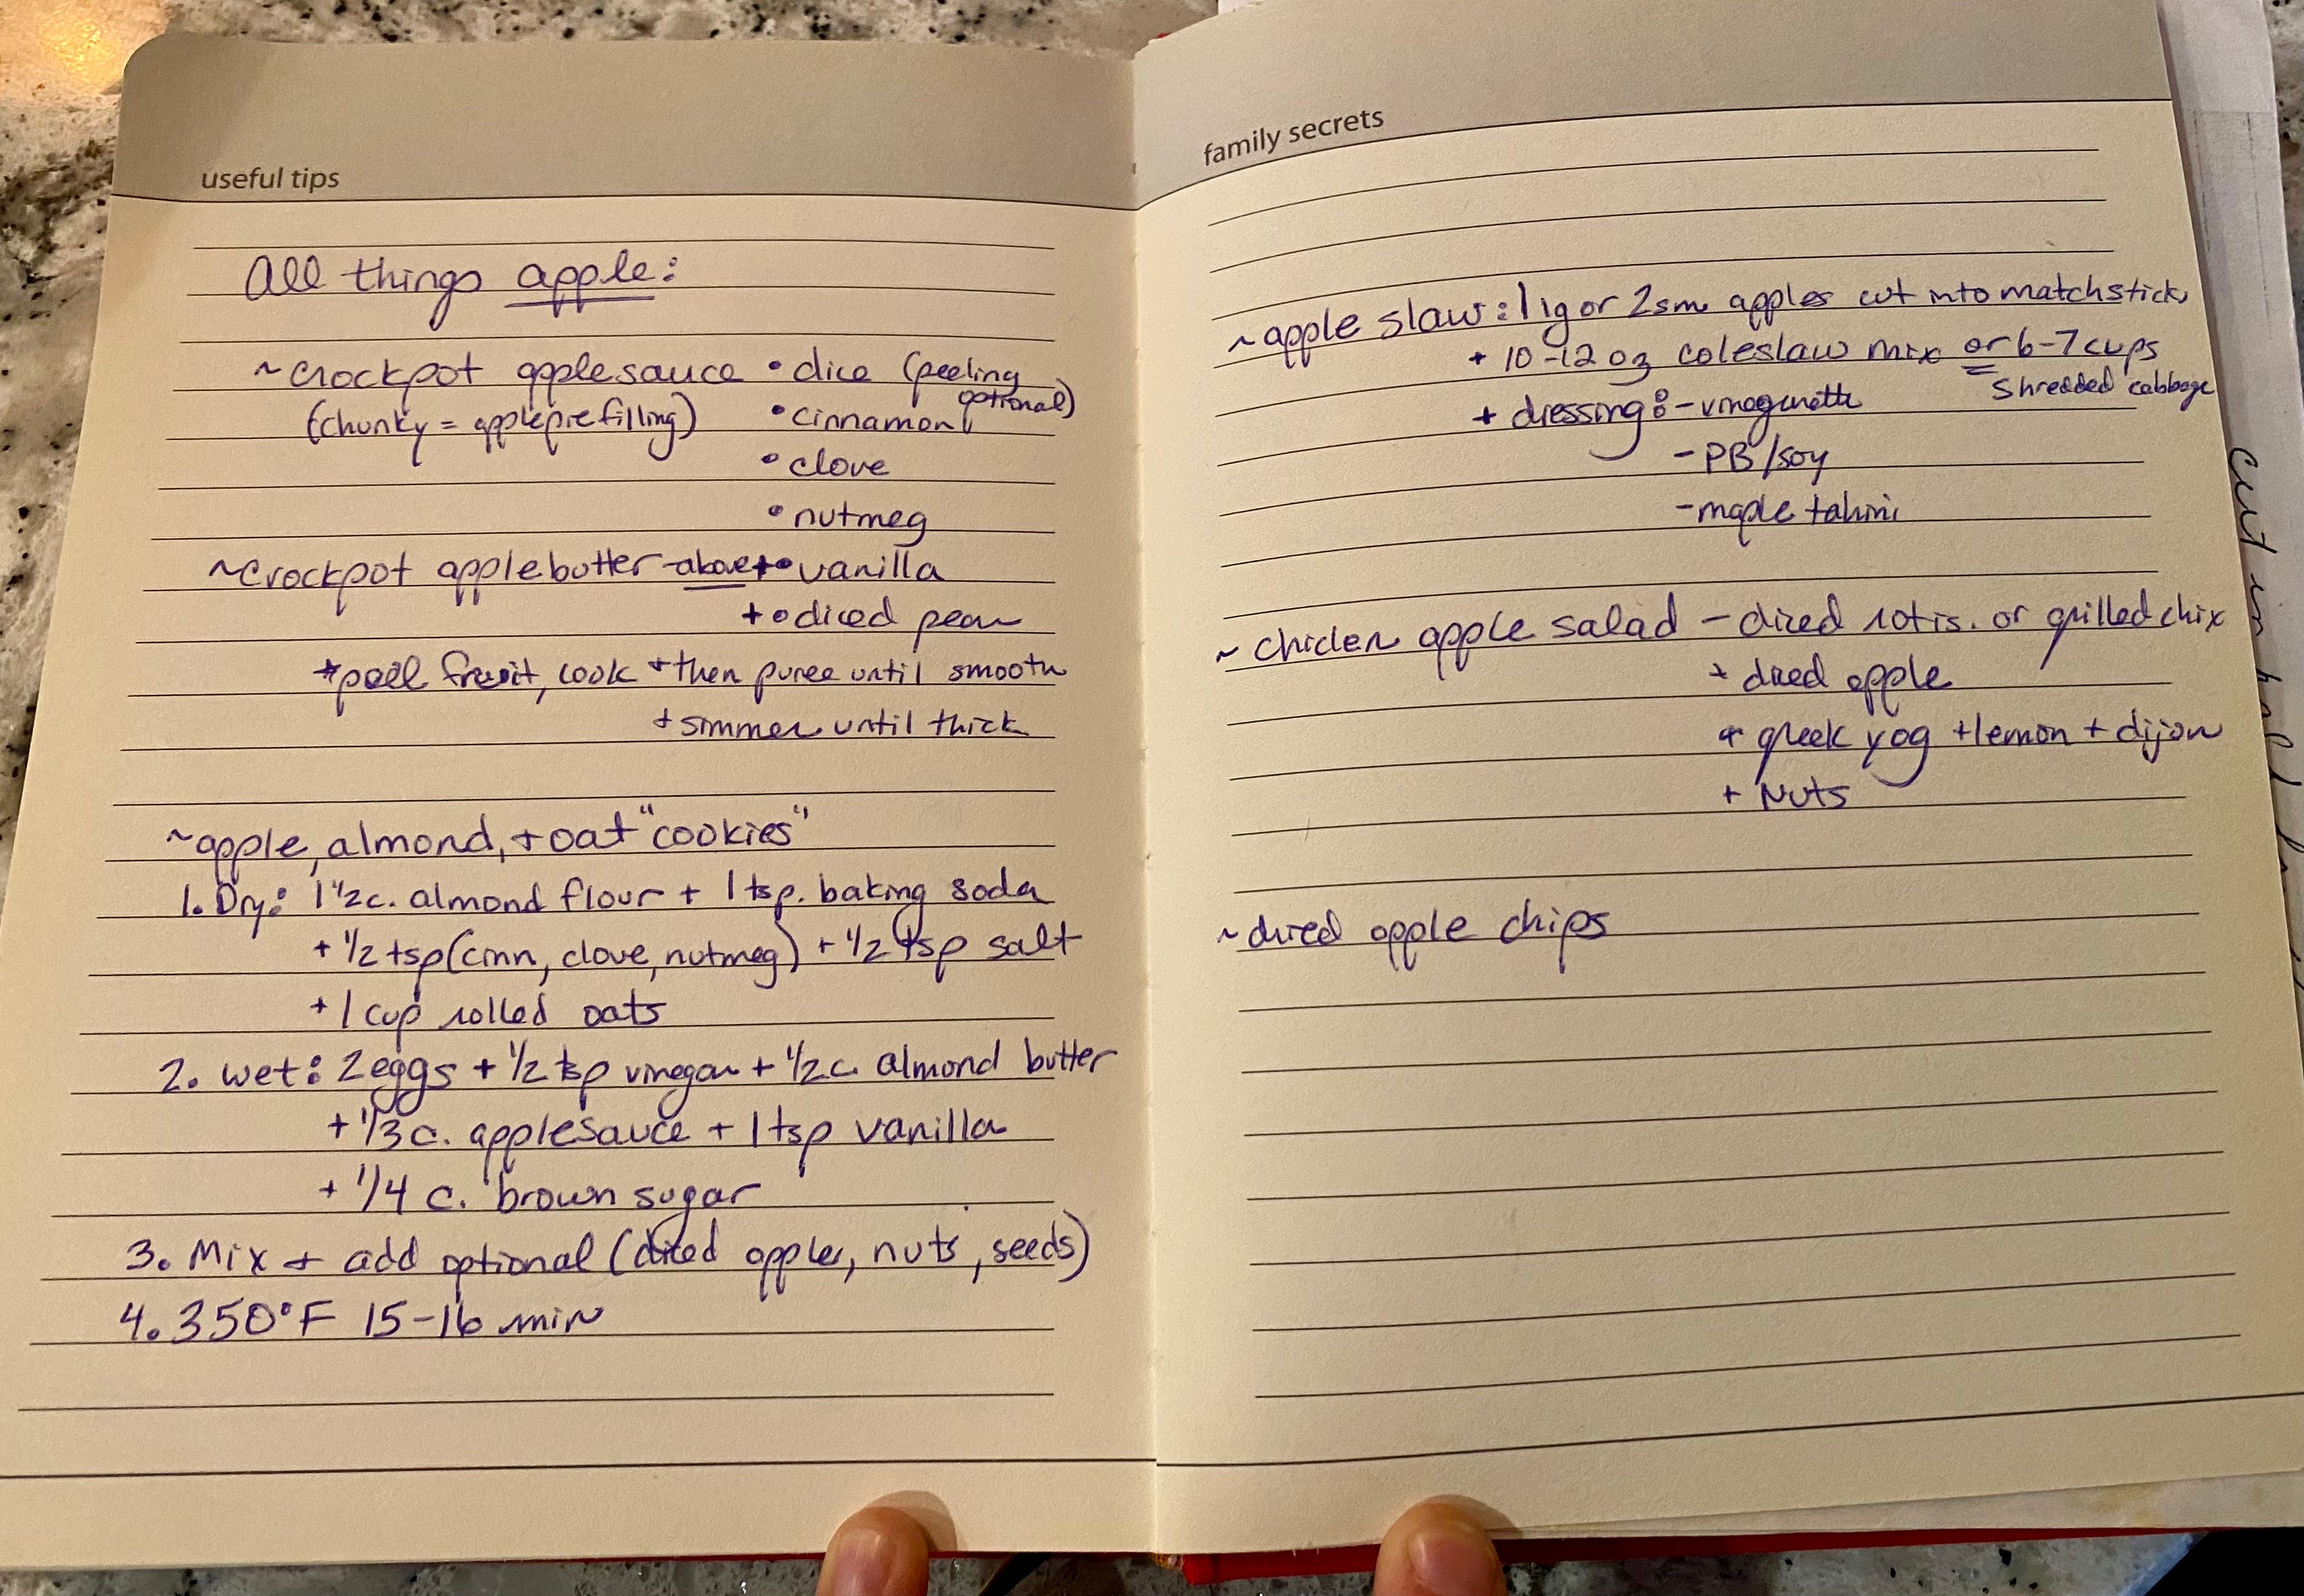 useful tips
All things apple:
~crockpot applesauce • dice (peeling optional)
(chunky = apple pie filling) • cinnamon
• clove
• nutmeg
~crockpot apple butter - above + • vanilla
+ • diced pear
*peel fruit, cook + then puree until smooth
+ simmer until thick
~apple, almond, + oat "cookies"
1. Dry: 1 1/2 c. almond flour + 1 tsp. baking soda
+ 1/2 tsp (cinn, clove, nutmeg) + 1/2 tsp salt
+ 1 cup rolled oats
2. wet: 2 eggs + 1/2 tsp vinegar + 1/2 c. almond butter
+ 1/3 c. applesauce + 1 tsp vanilla
+ 1/4 c. brown sugar
3. Mix + add optional (diced apples, nuts, seeds)
4. 350°F 15-16 min
family secrets
~apple slaw: 1 lg or 2 sm apples cut into matchsticks
+ 10-12 oz coleslaw mix or 6-7 cups
shredded cabbage
+ dressing: - vinegarette
- PB/soy
- maple tahini
~ chicken apple salad - diced rotis. or grilled chix
+ diced apple
+ greek yog + lemon + dijon
+ Nuts
~ dried apple chips
cut in